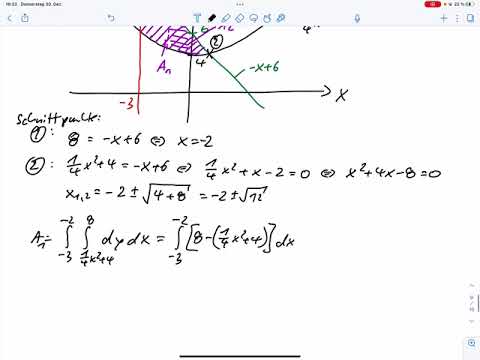 10:23 Donnerstag 30. Dez. 22 %
A₁
②
4
4
-x+6
-3
x
Schnittpunkte:
①: 8 = -x+6 ⇔ x=-2
②: 1/4 x²+4 = -x+6 ⇔ 1/4 x²+x-2=0 ⇔ x²+4x-8=0
x₁,₂ = -2 ± √(4+8) = -2 ± √12
A₁ = ∫₋₃⁻² ∫_{1/4 x²+4}^{8} dy dx = ∫₋₃⁻² [8-(1/4 x²+4)] dx